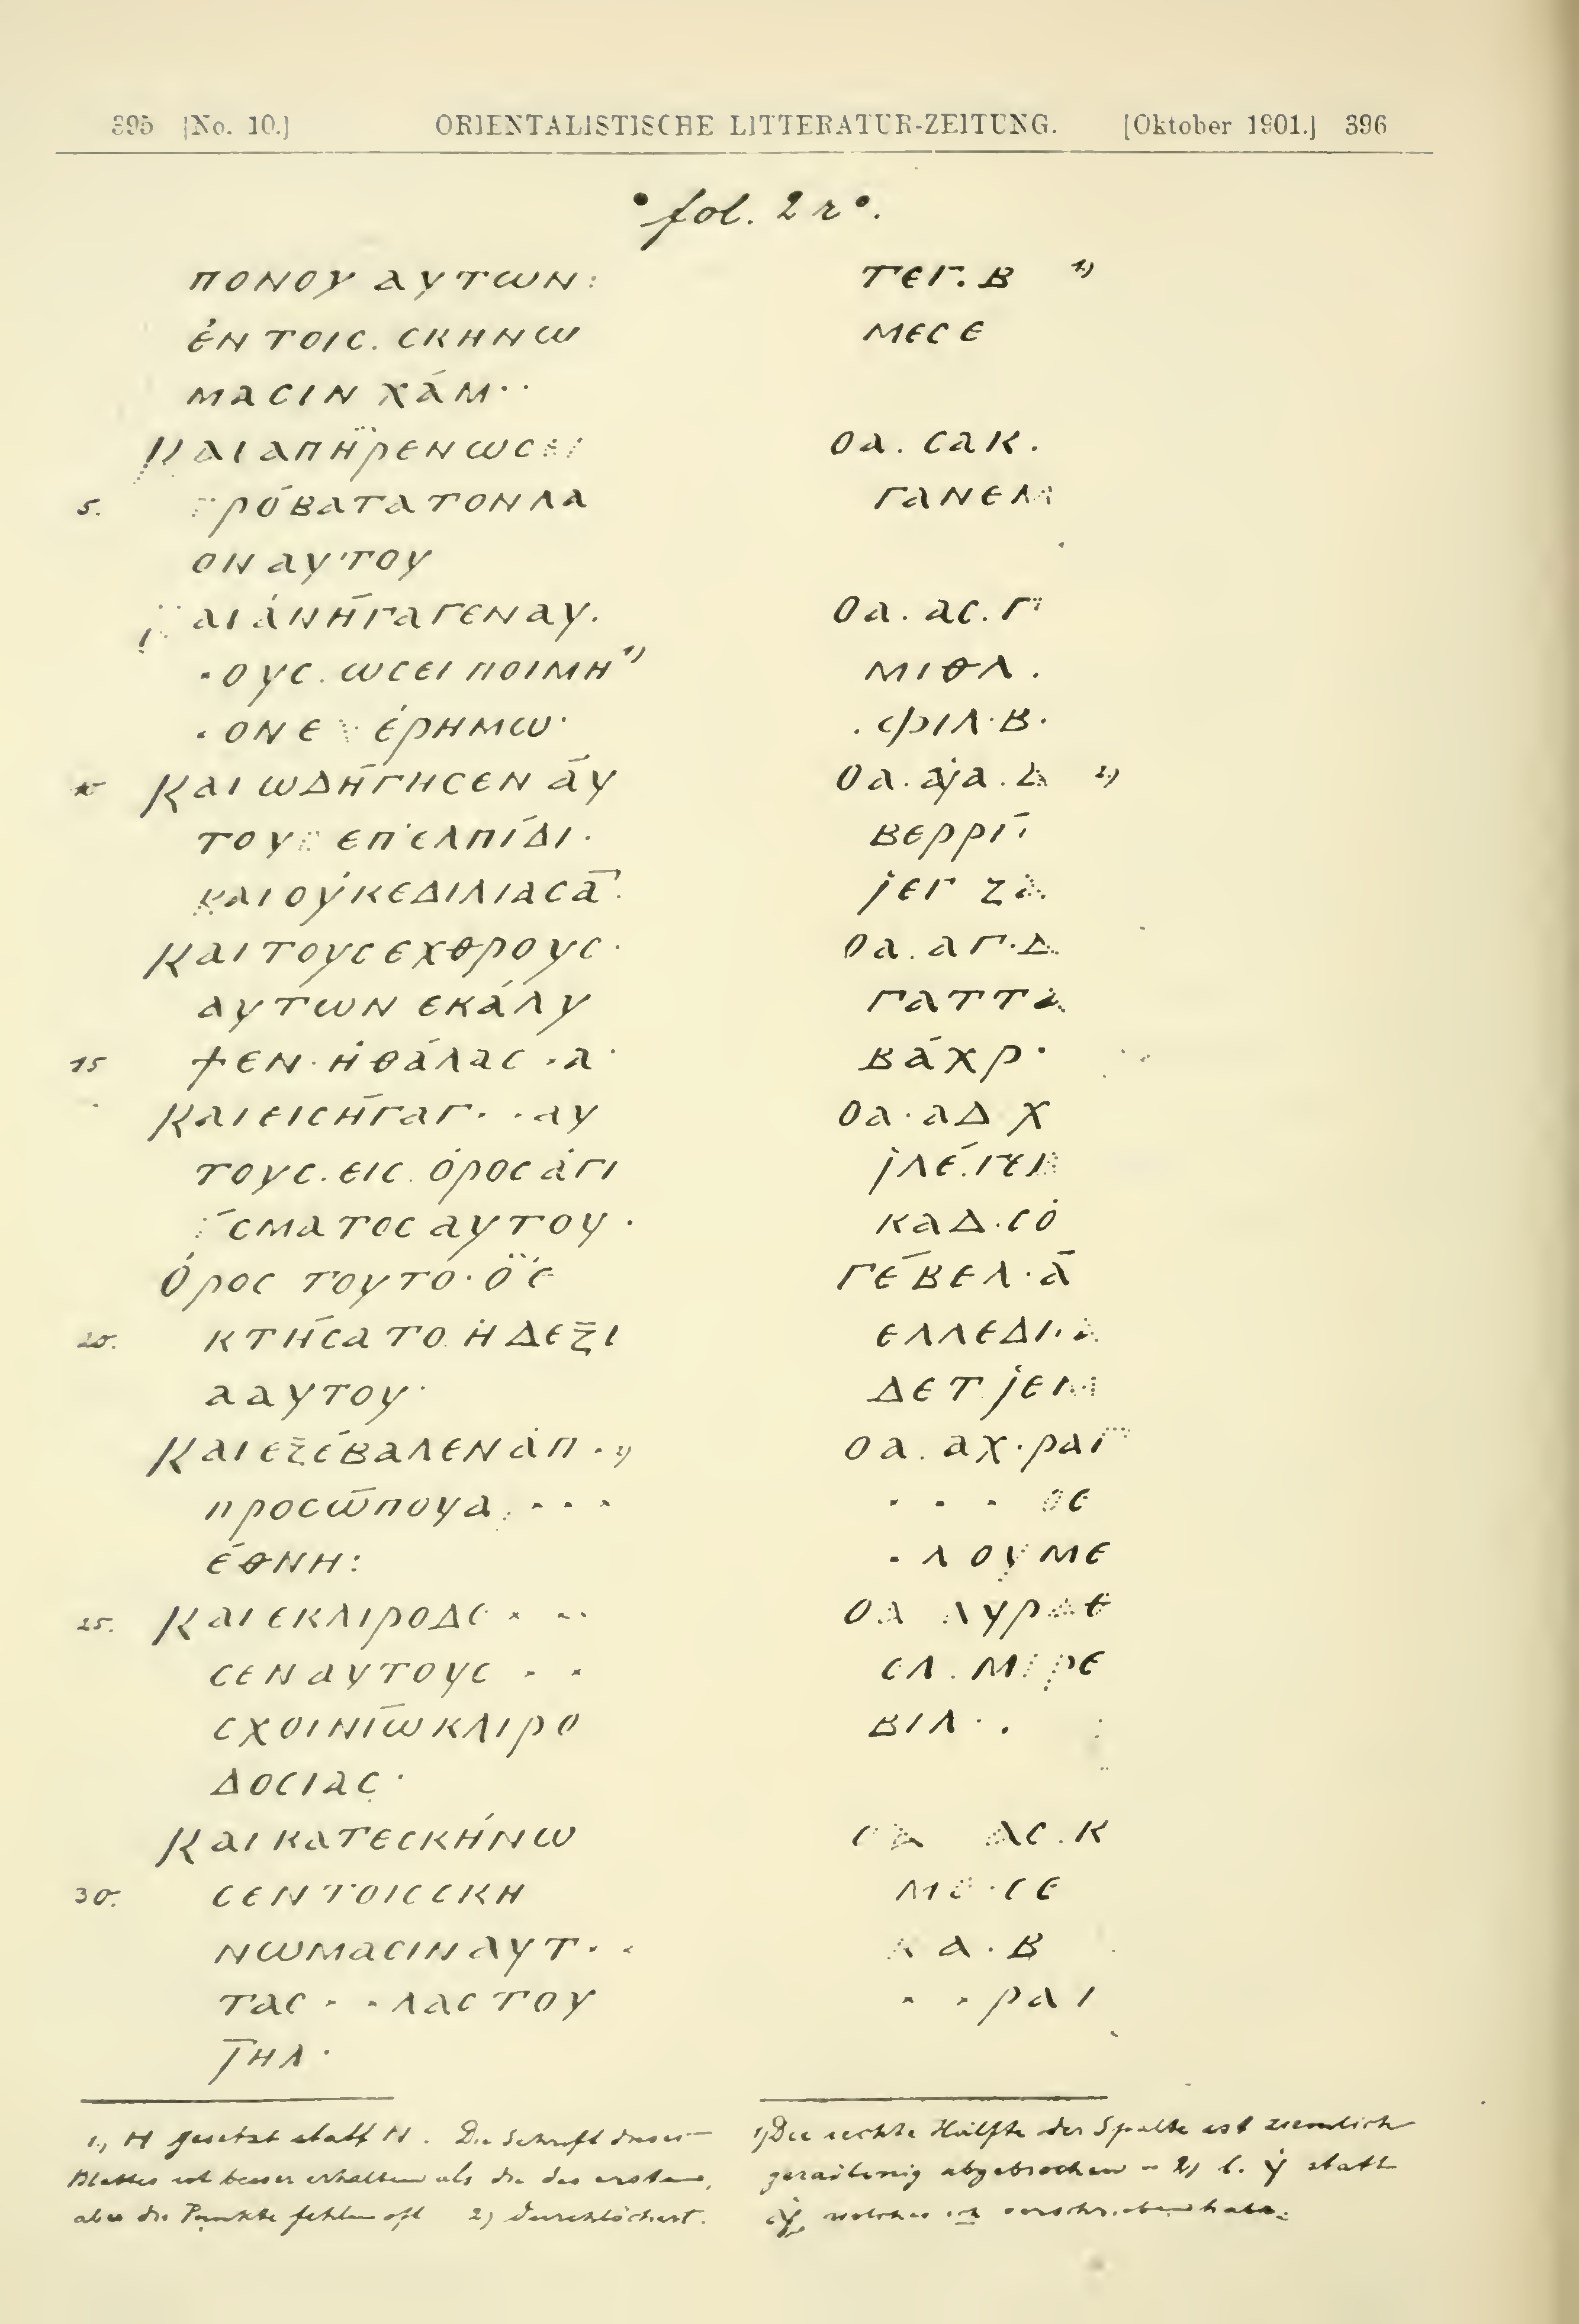 395 [No. 10.] ORIENTALISTISCHE LITTERATUR-ZEITUNG. [Oktober 1901.] 396
fol. 2 r°.
ΠΟΝΟΥ ΑΥΤΩΝ: ΤΕΓ. Β 1)
ἐΝ ΤΟΙC. CΚΗΝΩ ΜΕCΕ
ΜΑCΙΝ ΧΆΜ··
ΚΑΙ ΑΠΗΡΕΝ ΩCΕΙ ΟΑ. CΑΚ.
5. ΠΡΌΒΑΤΑ ΤΟΝ ΛΑ ΓΑΝΕΜ
ΟΝ ΑΥΤΟΥ
ΚΑΙ ΑΝΉΓΑΓΕΝ ΑΥ. ΟΑ. ΑC. Γ
·ΟΥC. ΩCΕΙ ΠΟΙΜΗ 1) ΜΙΘΛ.
·ΟΝ ΕΝ ΈΡΗΜΩ· .ΦΙΛ·Β·
10 ΚΑΙ ΩΔΉΓΗCΕΝ ΑΥ ΟΑ. ΑJΑ. Δ 2)
ΤΟΥC ΕΠ ΕΛΠΊΔΙ· ΒΕΡΡΙ
ΚΑΙ ΟΥΚ ΕΔΙΛΙΑCΑ· jΕΓ ΖΑ
ΚΑΙ ΤΟΥC ΕΧΘΡΟΥC· ΟΑ. ΑΓ·Δ
ΑΥΤΩΝ ΕΚΆΛΥ ΓΑΤΤΑ
15 ΨΕΝ· Η ΘΆΛΑC·Α· ΒΆΧΡ·
ΚΑΙ ΕΙCΉΓΑΓ··ΑΥ ΟΑ·ΑΔ Χ
ΤΟΥC. ΕΙC. ΟΡΟC ΑΓΙ
CΜΑΤΟC ΑΥΤΟΥ· ΚΑΔ·CΟ
ΟΡΟC ΤΟΥΤΟ· Ο Ε ΓΈΒΕΛ·Α
20. ΚΤΉCΑΤΟ Η ΔΕΞΙ ΕΛΛΕΔΙ·
Α ΑΥΤΟΥ· ΔΕΤ jΕΜ
ΚΑΙ ΕΞΈΒΑΛΕΝ ΑΠ· 2) ΟΑ. ΑΧ·ΡΑΓ
ΠΡΟCΏΠΟΥ Α··· ···ΘΕ
ΈΘΝΗ: ·ΛΟΥΜΕ
25. ΚΑΙ ΕΚΛΙΡΟΔΕ··· ΟΑ ΛΥΡ Ε
CΕΝ ΑΥΤΟΥC·· ΕΛ. Μ ΡΕ
CΧΟΙΝΊΩ ΚΛΙΡΟ ΒΙΛ··
ΔΟCΙΑC·
ΚΑΙ ΚΑΤΕCΚΉΝΩ ΟΑ ΑC.Κ
30. CΕΝ ΤΟΙC CΚΗ ΜΕ·CΕ
ΝΩΜΑCΙΝ ΑΥΤ·· ΚΑ·Β
ΤΑC··ΛΑC ΤΟΥ ··ΡΑΙ
ΙΗΛ·
1., Η gesetzt statt Ν. Die Schrift dieses
Blattes ist besser erhalten als die des ersten,
aber die Punkte fehlen oft 2) durchlöchert.
1) Die rechte Hälfte der Spalte ist ziemlich
geradlinig abgebrochen – 2) l. statt
welches ich verschrieben habe.